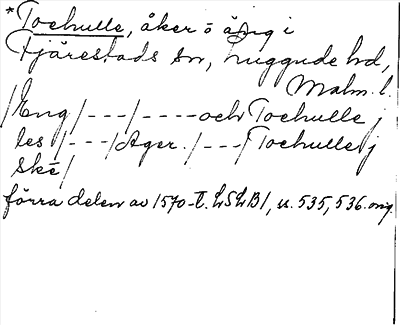 *Toehulle, åker o äng i
Fjärestads sn, Luggude hd,
Malm. l.
/Eng/---/----och Toehulle j
les/---/Ager./---/Toehulle j
ske/
förra delen av 1570-t. LSLB1, s. 535, 536. orig.